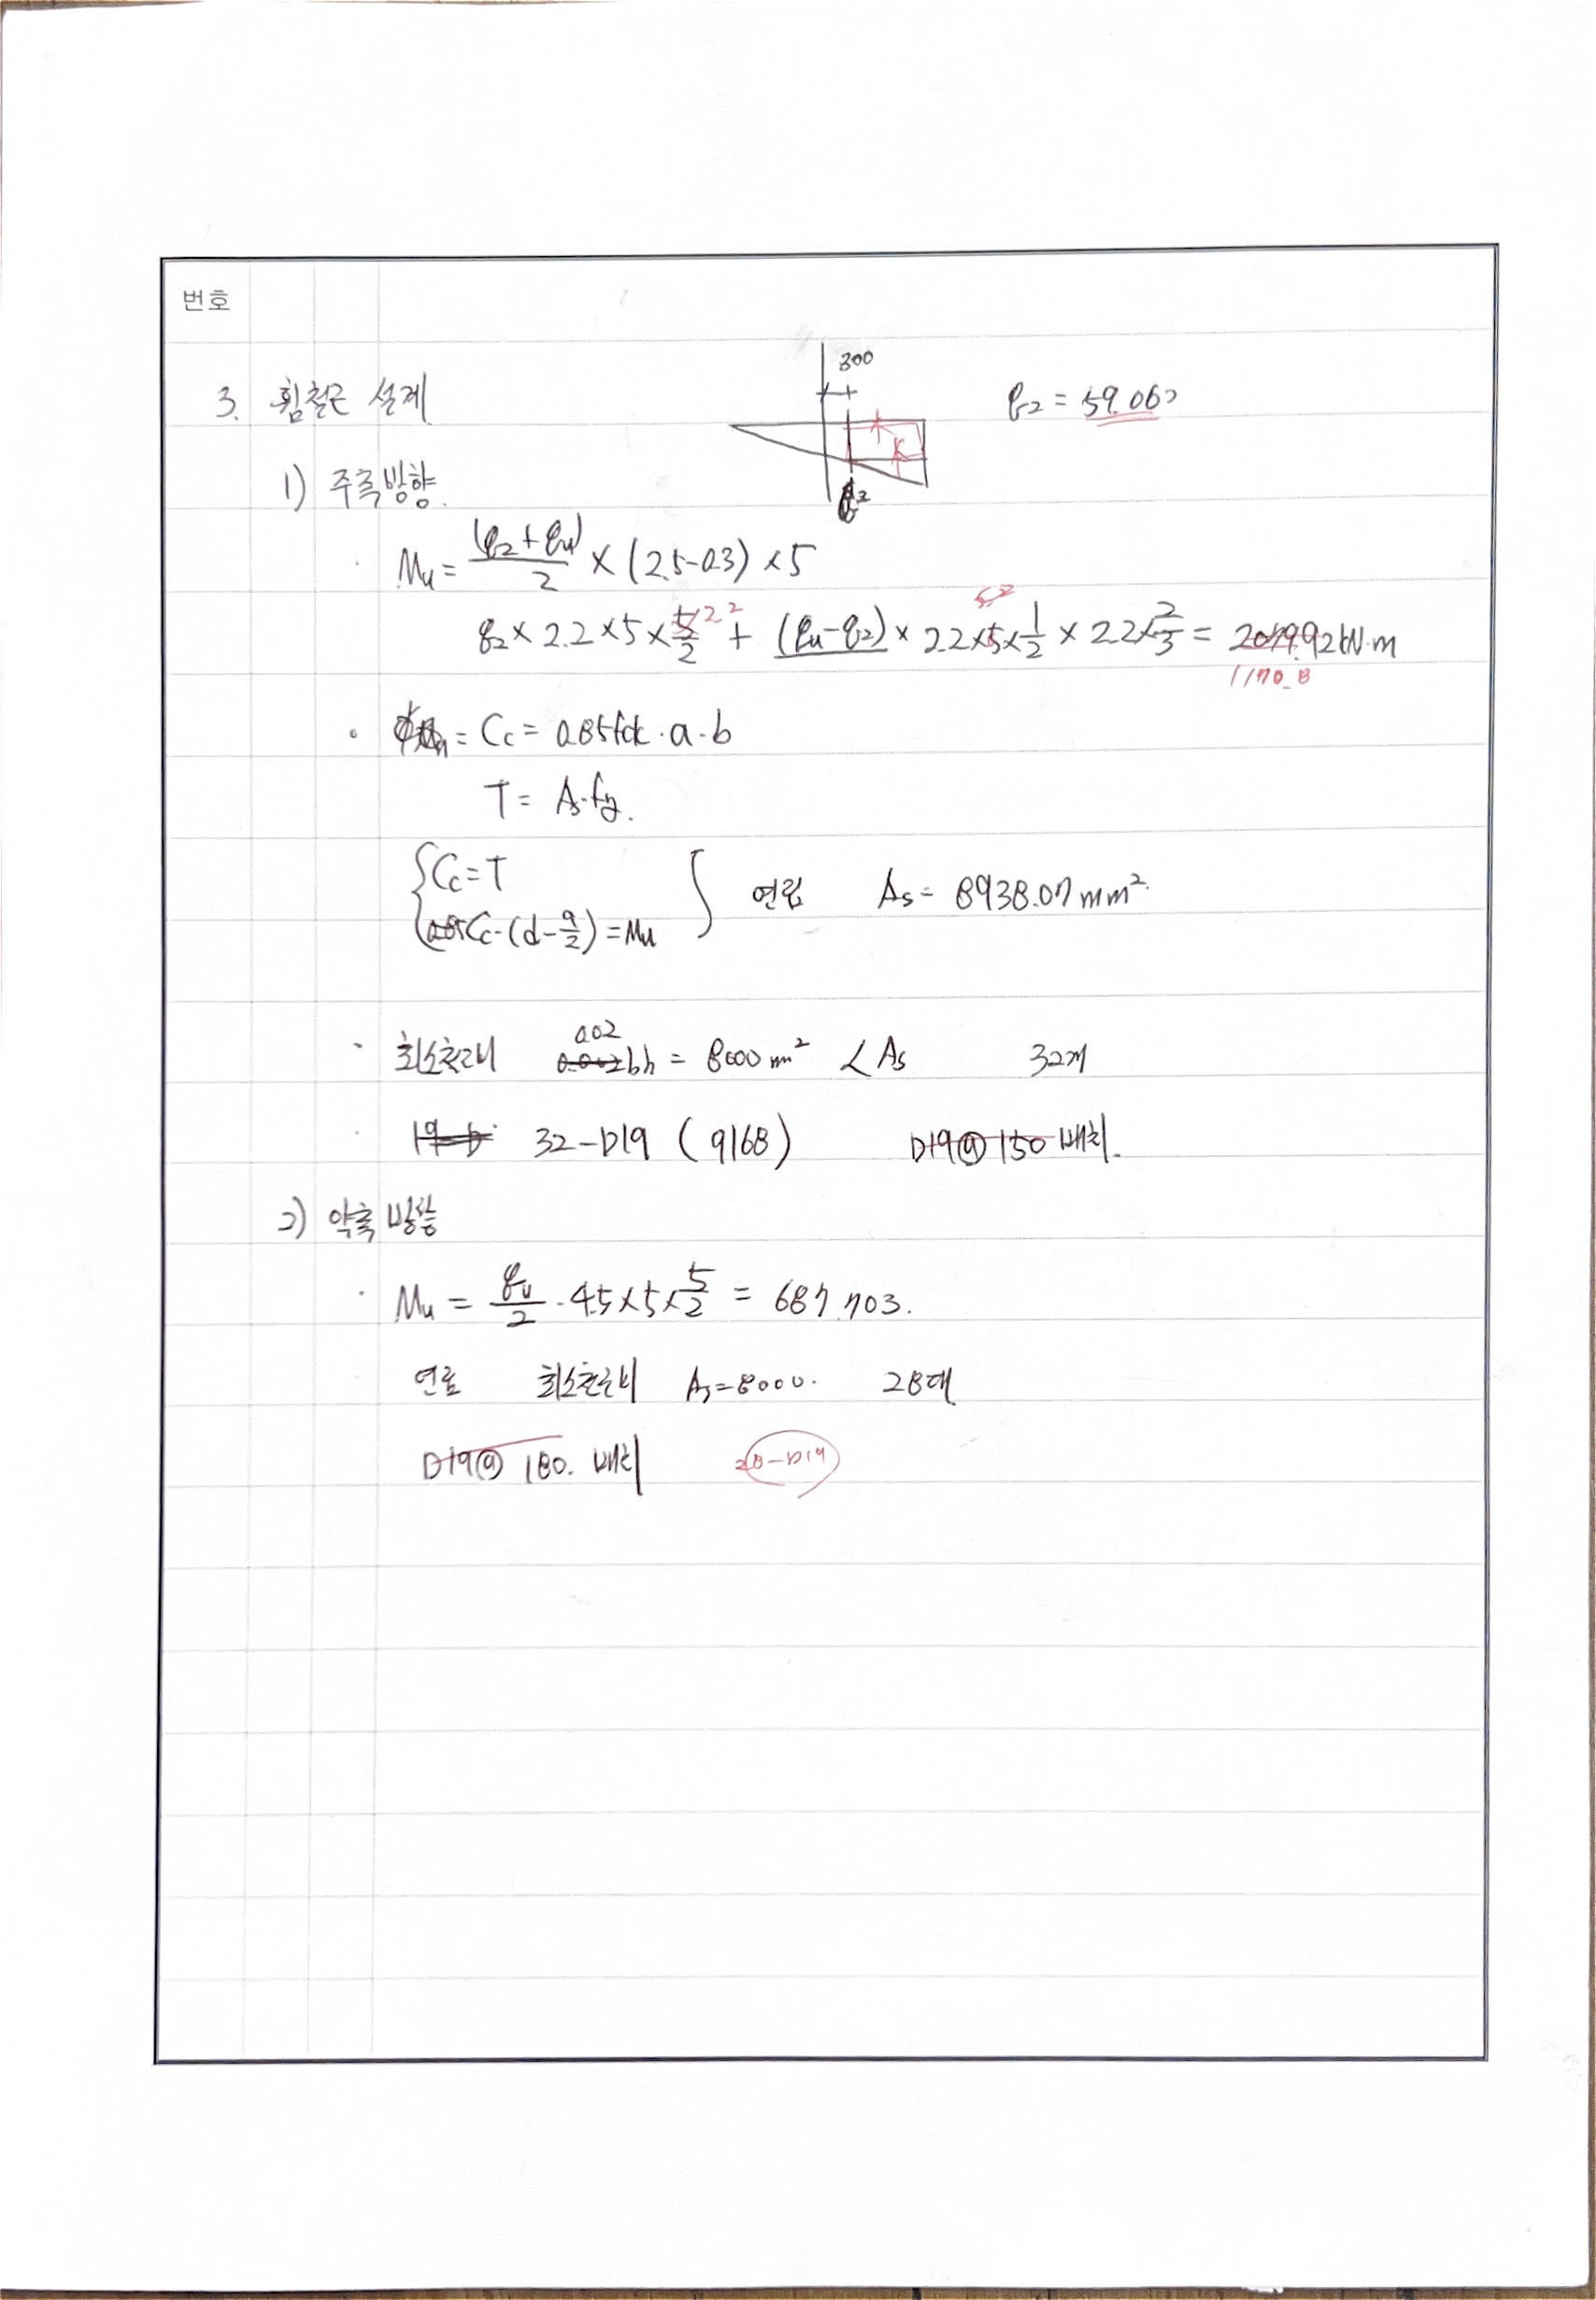 번호
300
3. 휨철근 설계
q2 = 59.062
1) 주축방향.
q2
Mu = (q2+qu)/2 × (2.5-0.3) ×5
q2 × 2.2 ×5 × 2.2/2 + (qu-q2) × 2.2×5×1/2 × 2.2×2/3 = 2079.92kN·m
5.2
1170.8
= Cc = 0.85fck · a · b
T = As·fy.
Cc = T
Cc·(d-a/2) = Mu
연립 As = 8938.07 mm²
0.02
최소철근비 0.002bh = 8000 mm² < As 32개
32-D19 (9168) D19@150 배치.
2) 약축 방향
Mu = qu/2 · 4.5×5×5/2 = 687.703.
최소철근비 As=8000. 28개
D19@ 180. 배치 28-D19